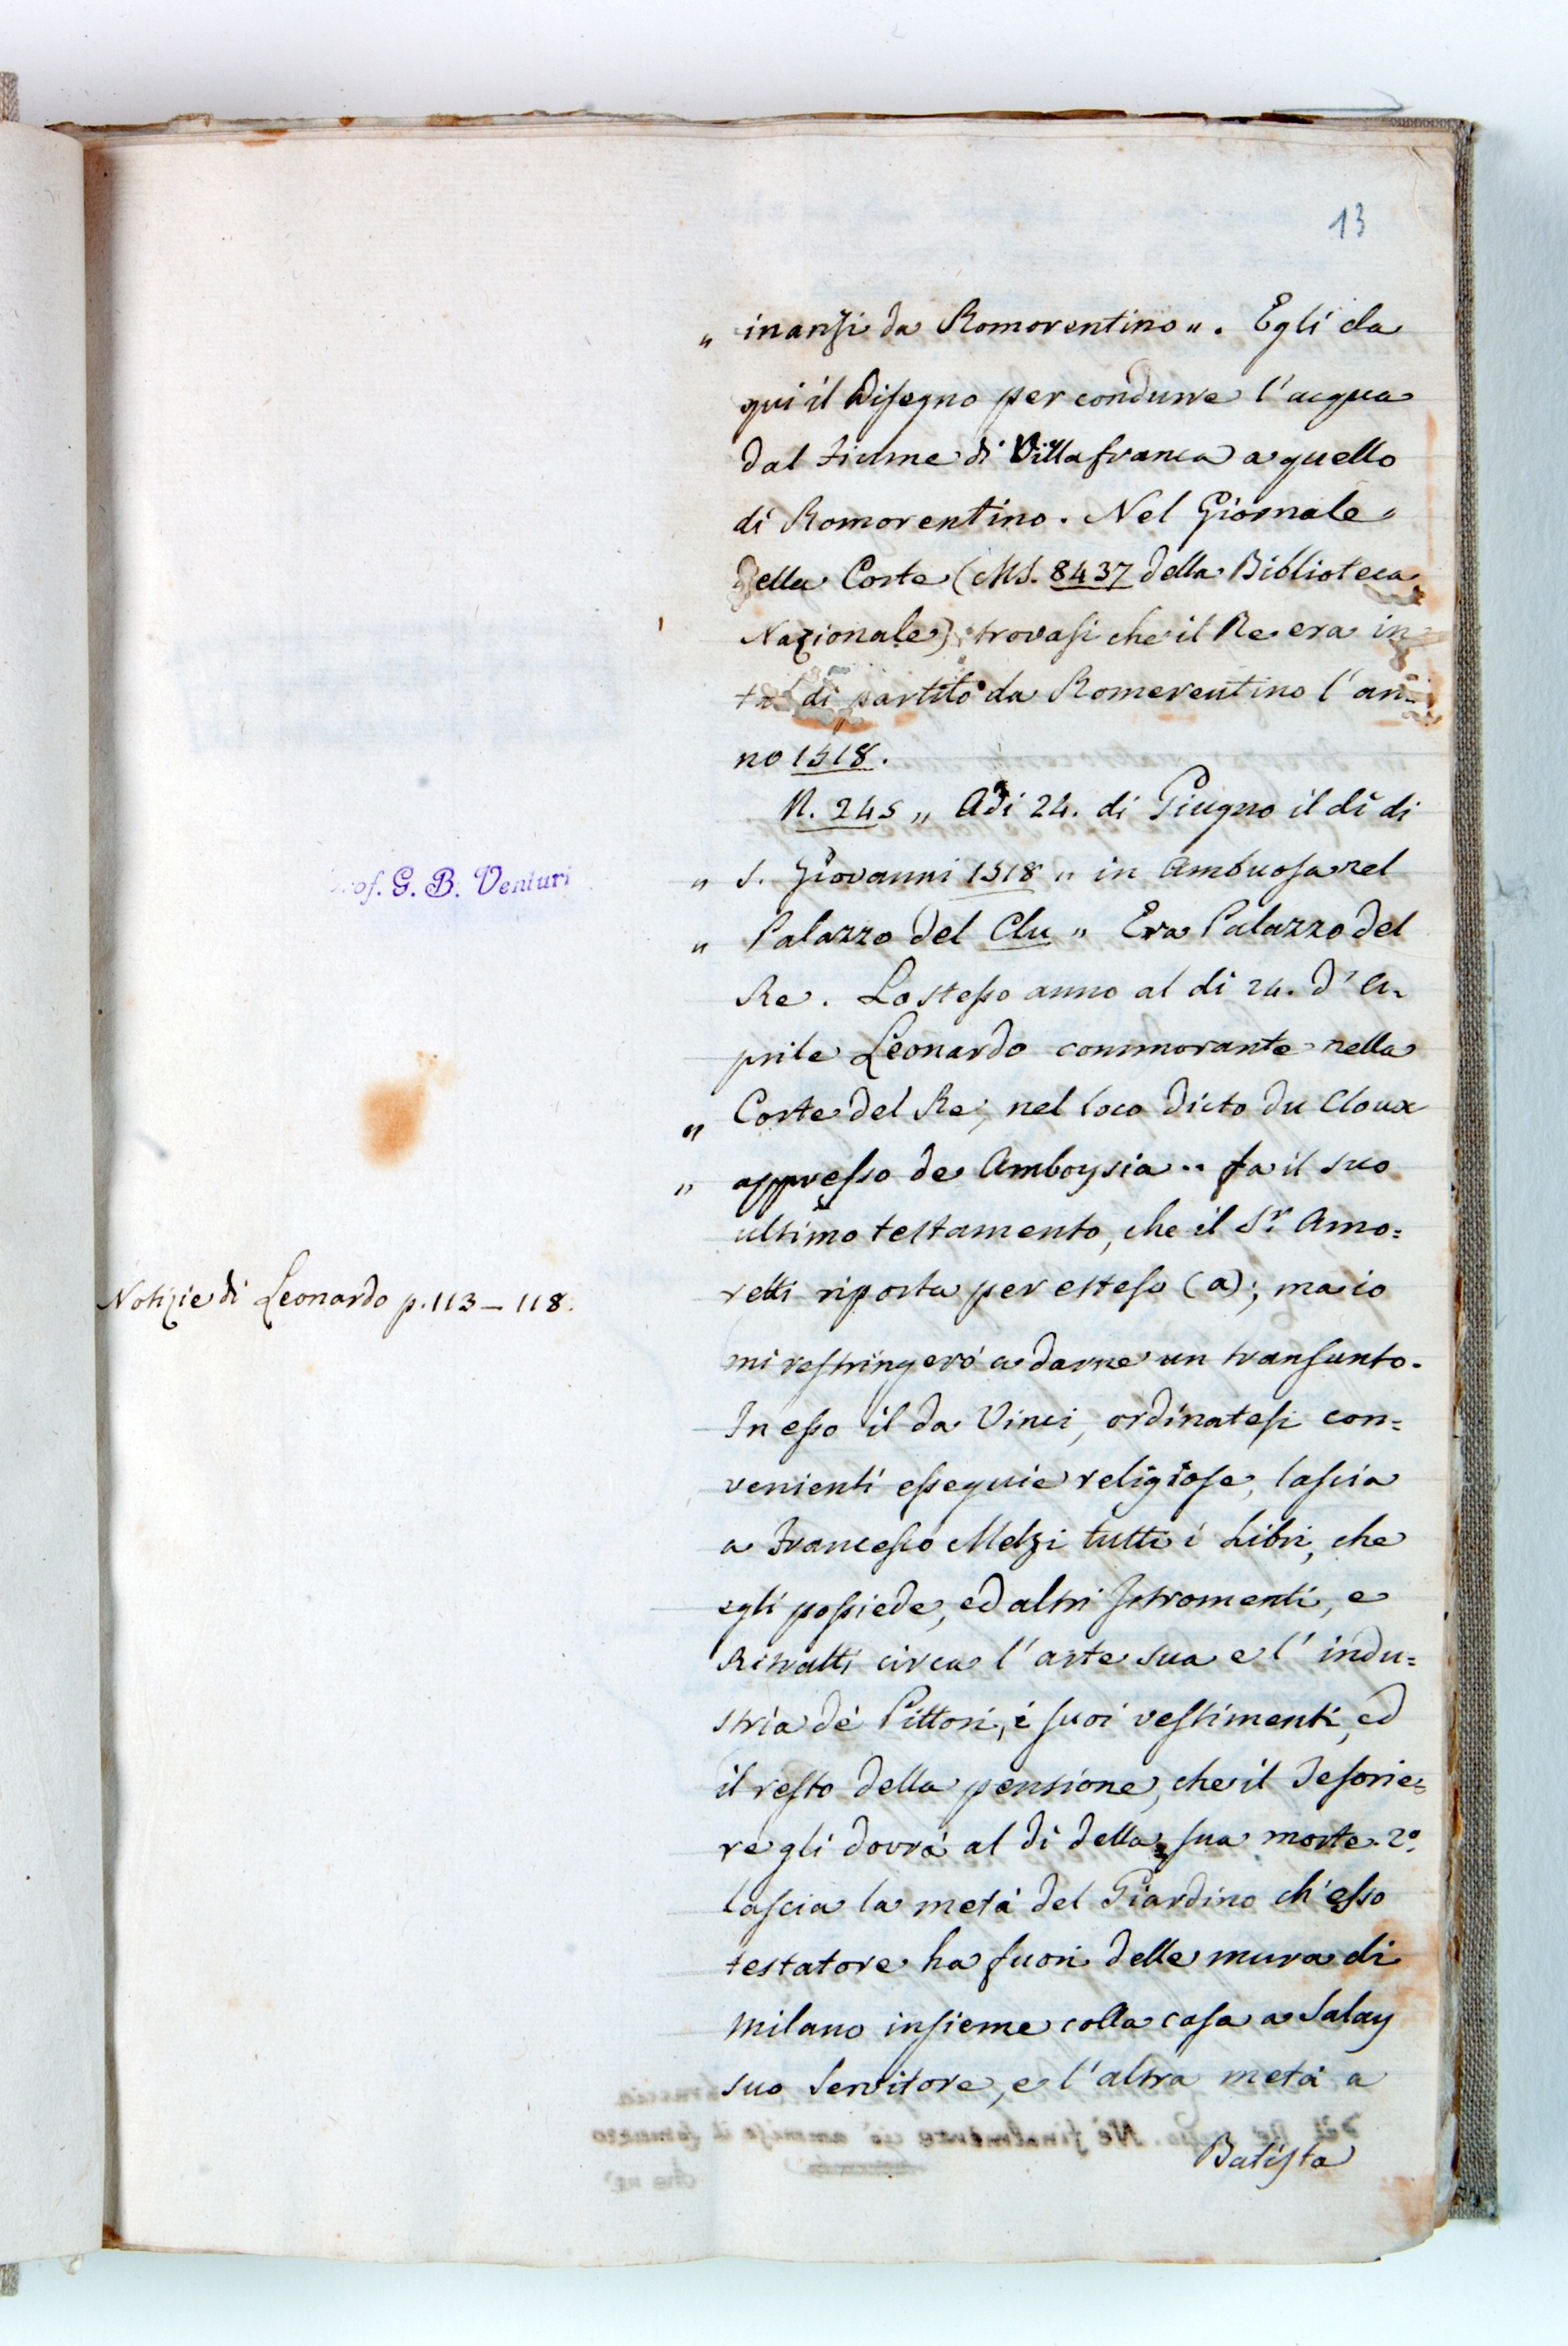 13
„ inanzi da Romorentino „. Egli da
qui il Disegno per condurre l'acqua
dal Fiume di Villafranca a quello
di Romorentino. Nel Giornale
della Corte (MS. 8437 della Biblioteca
Nazionale) trovasi che il Re era in
di partito da Romerentino l'an-
no 1518.
N. 245 „ Adi 24. di Giugno il dì di
„ S. Giovanni 1518 „ in Ambuosa nel
„ Palazzo del Clu „ Era Palazzo del
Re. Lo stesso anno al di 24. d'A-
prile Leonardo commorante nella
„ Corte del Re, nel loco dicto du Cloux
„ appresso de Amboysia „ fa il suo
ultimo testamento, che il Sr. Amo=
retti riporta per esteso (a); ma io
mi restringerò a darne un transunto.
In esso il da Vinci, ordinatesi con=
venienti esequie religiose, lascia
a Francesco Melzi tutti i Libri, che
egli possiede, ed altri Istromenti, e
Ritratti circa l'arte sua e l'indu=
stria dè Pittori, i suoi vestimenti, ed
il resto della pensione, che il Tesorie=
re gli dovrà al dì della sua morte. 2º
lascia la metà del Giardino ch'esso
testatore ha fuori delle mura di
Milano insieme colla casa a Salay
suo Servitore, e l'altra metà a
Batista
Prof. G. B. Venturi
Notizie di Leonardo p. 113 – 118.